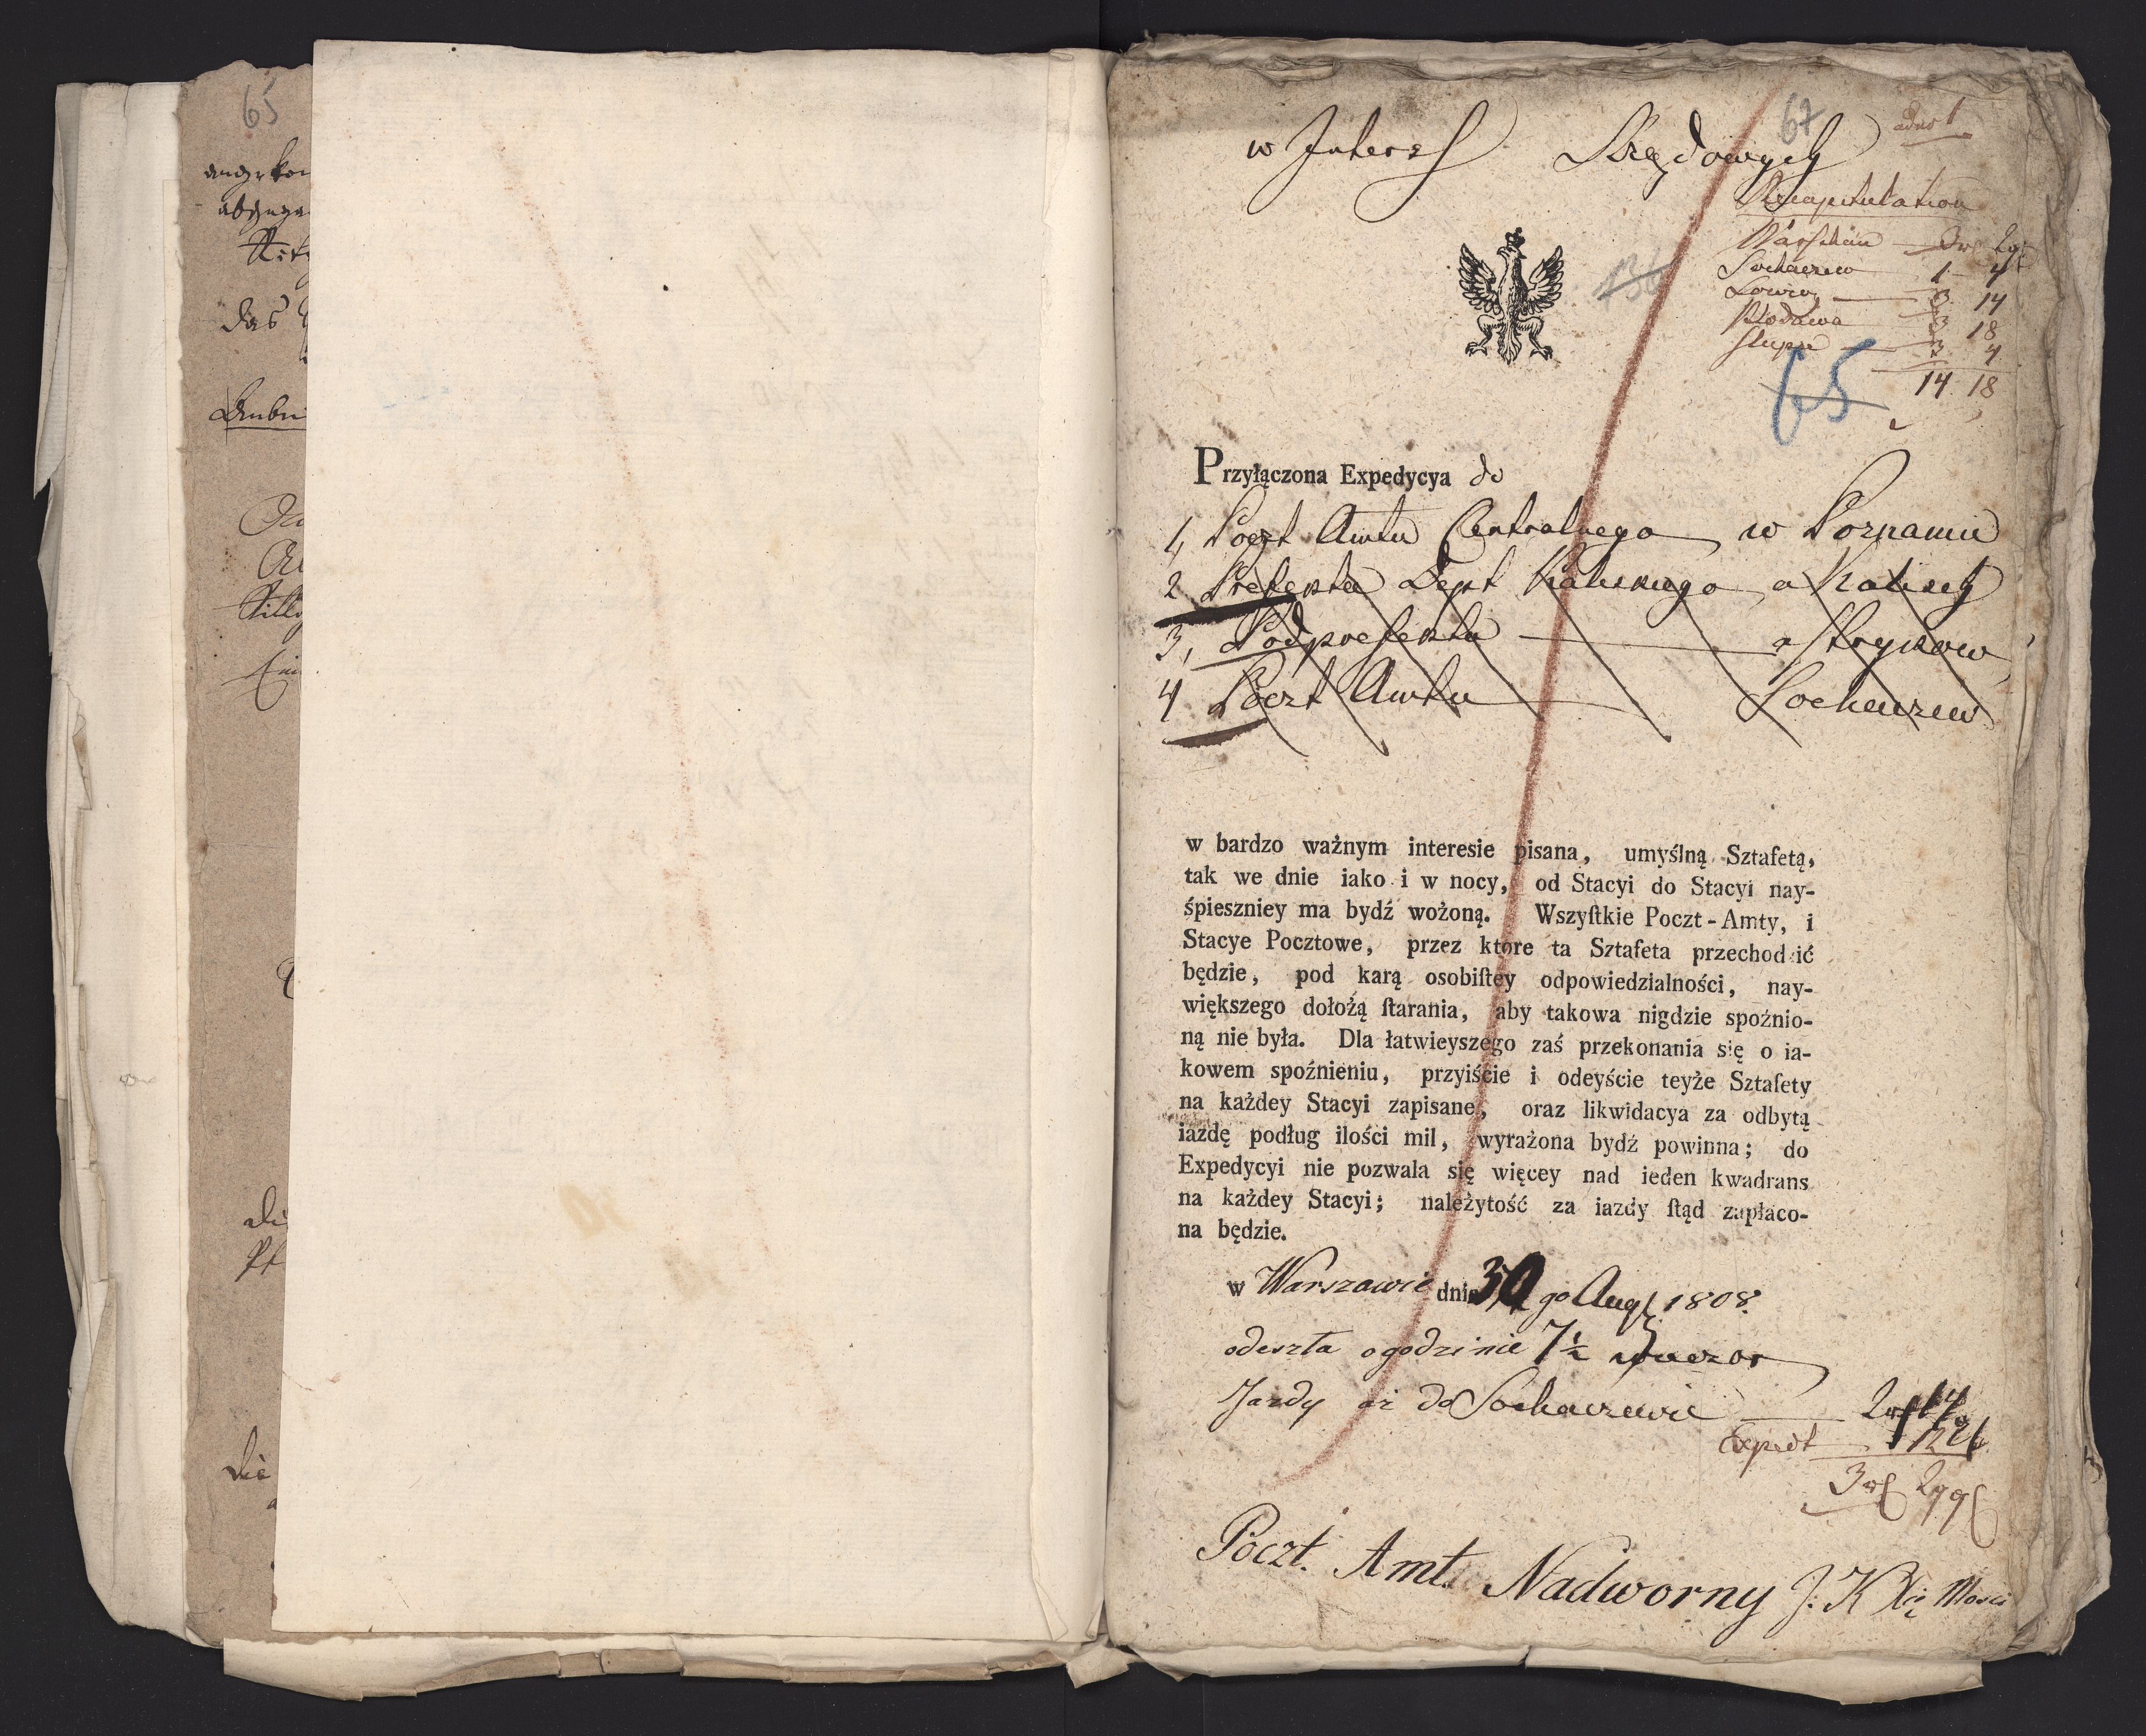 65
das
67
w Interess Rządowych
Recapitulation
Warschau 3 rf 2 gr
Sochaczew 1 4
Lowicz 3 14
Klodawa 3 18
Slupce 3 4
14 18
136
65
Przyłączona Expedycya do
1, Poczt Amtu Centralnego w Poznaniu
2 Prefekta Dept Kaliskiego a Kalisch
3, Podprefekta a Strykow
4 Poczt Amtu Sochaczew
w bardzo ważnym interesie pisana, umyślną Sztafetą,
tak we dnie iako i w nocy, od Stacyi do Stacyi nay-
śpieszniey ma bydź wożoną. Wszyſtkie Poczt-Amty, i
Stacye Pocztowe, przez ktore ta Sztafeta przechodzić
będzie, pod karą osobiſtey odpowiedzialności, nay-
większego dołożą ſtarania, aby takowa nigdzie spoźnio-
ną nie była. Dla łatwieyszego zaś przekonania się o ia-
kowem spoźnieniu, przyiście i odeyście teyże Sztafety
na każdey Stacyi zapisane, oraz likwidacya za odbytą
iazdę podług ilości mil, wyrażona bydź powinna; do
Expedycyi nie pozwala się więcey nad ieden kwadrans
na każdey Stacyi; należytość za iazdy ſtąd zapłaco-
na będzie.
w Warszawie dnia 30 go Aug 1808.
odeszła o godzinie 7½ wieczor
Jazdy az do Sochaczewie 2 rf 14
Expedt 12
3 rf 2 ggr
Poczt. Amt. Nadworny J. K Xcę Mosci